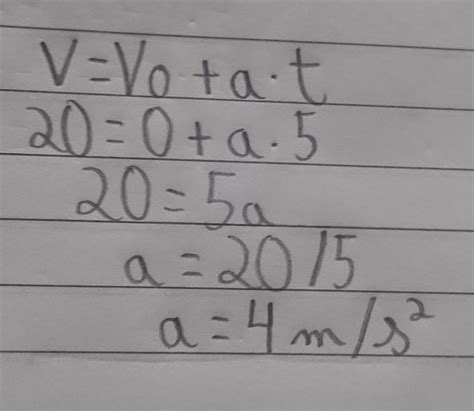 V=Vo+a·t
20=0+a·5
20=5a
a=20/5
a=4m/s²